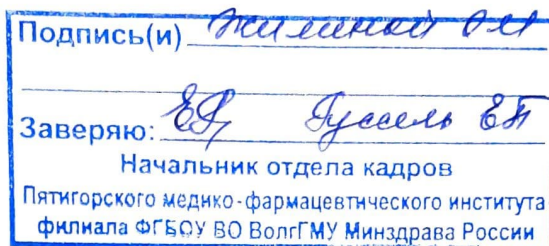 Подпись(и) Жилиной ОМ
Заверяю: Гуссель ЕП
Начальник отдела кадров
Пятигорского медико-фармацевтического института
филиала ФГБОУ ВО ВолгГМУ Минздрава России